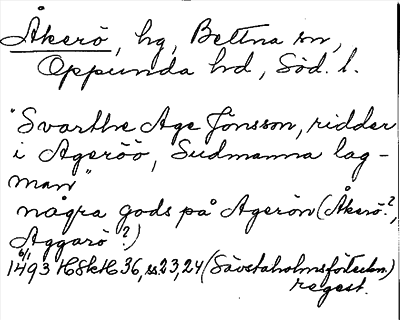 Åkerö, hg, Bettna sn,
Oppunda hd, Söd. l.
"Svarthe Age Jonsson, ridder
i Ageröö, Sudmanna lag-
man"
några gods på Agerön (Åkerö?,
Aggarö?)
6/1
1493 HSH H 36, ss. 23, 24 (Sävstaholmsförteckn.)
regest.